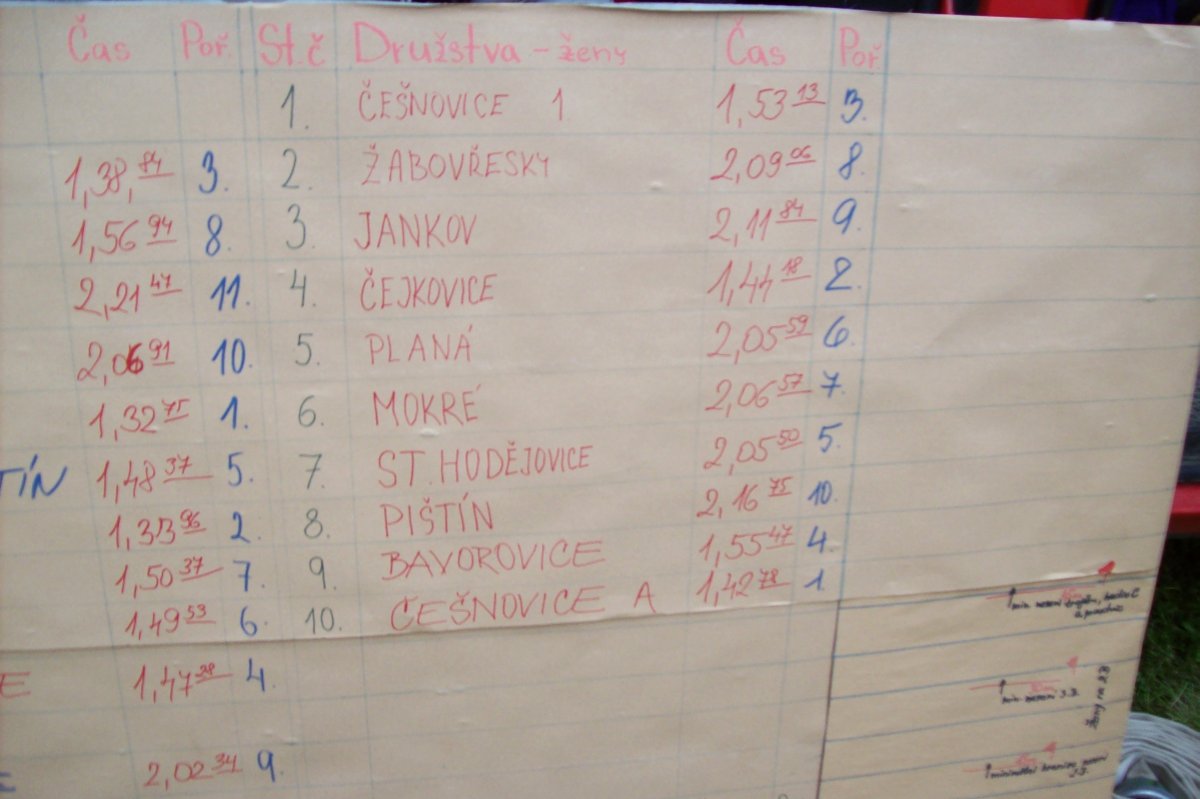 Čas Poř. St.č Družstva - ženy Čas Poř.
1. ČEŠNOVICE 1 1,53 13 3.
1,38, 84 3. 2. ŽABOVŘESKY 2,09 06 8.
1,56 94 8. 3. JANKOV 2,11 84 9.
2,21 47 11. 4. ČEJKOVICE 1,44 18 2.
2,06 91 10. 5. PLANÁ 2,05 59 6.
1,32 75 1. 6. MOKRÉ 2,06 57 7.
TÍN 1,48 37 5. 7. ST. HODĚJOVICE 2,05 50 5.
1,33 96 2. 8. PIŠTÍN 2,16 75 10.
1,50 37 7. 9. BAVOROVICE 1,55 47 4.
1,49 53 6. 10. ČEŠNOVICE A 1,42 78 1
E 1,47 4.
2,02 34 9.